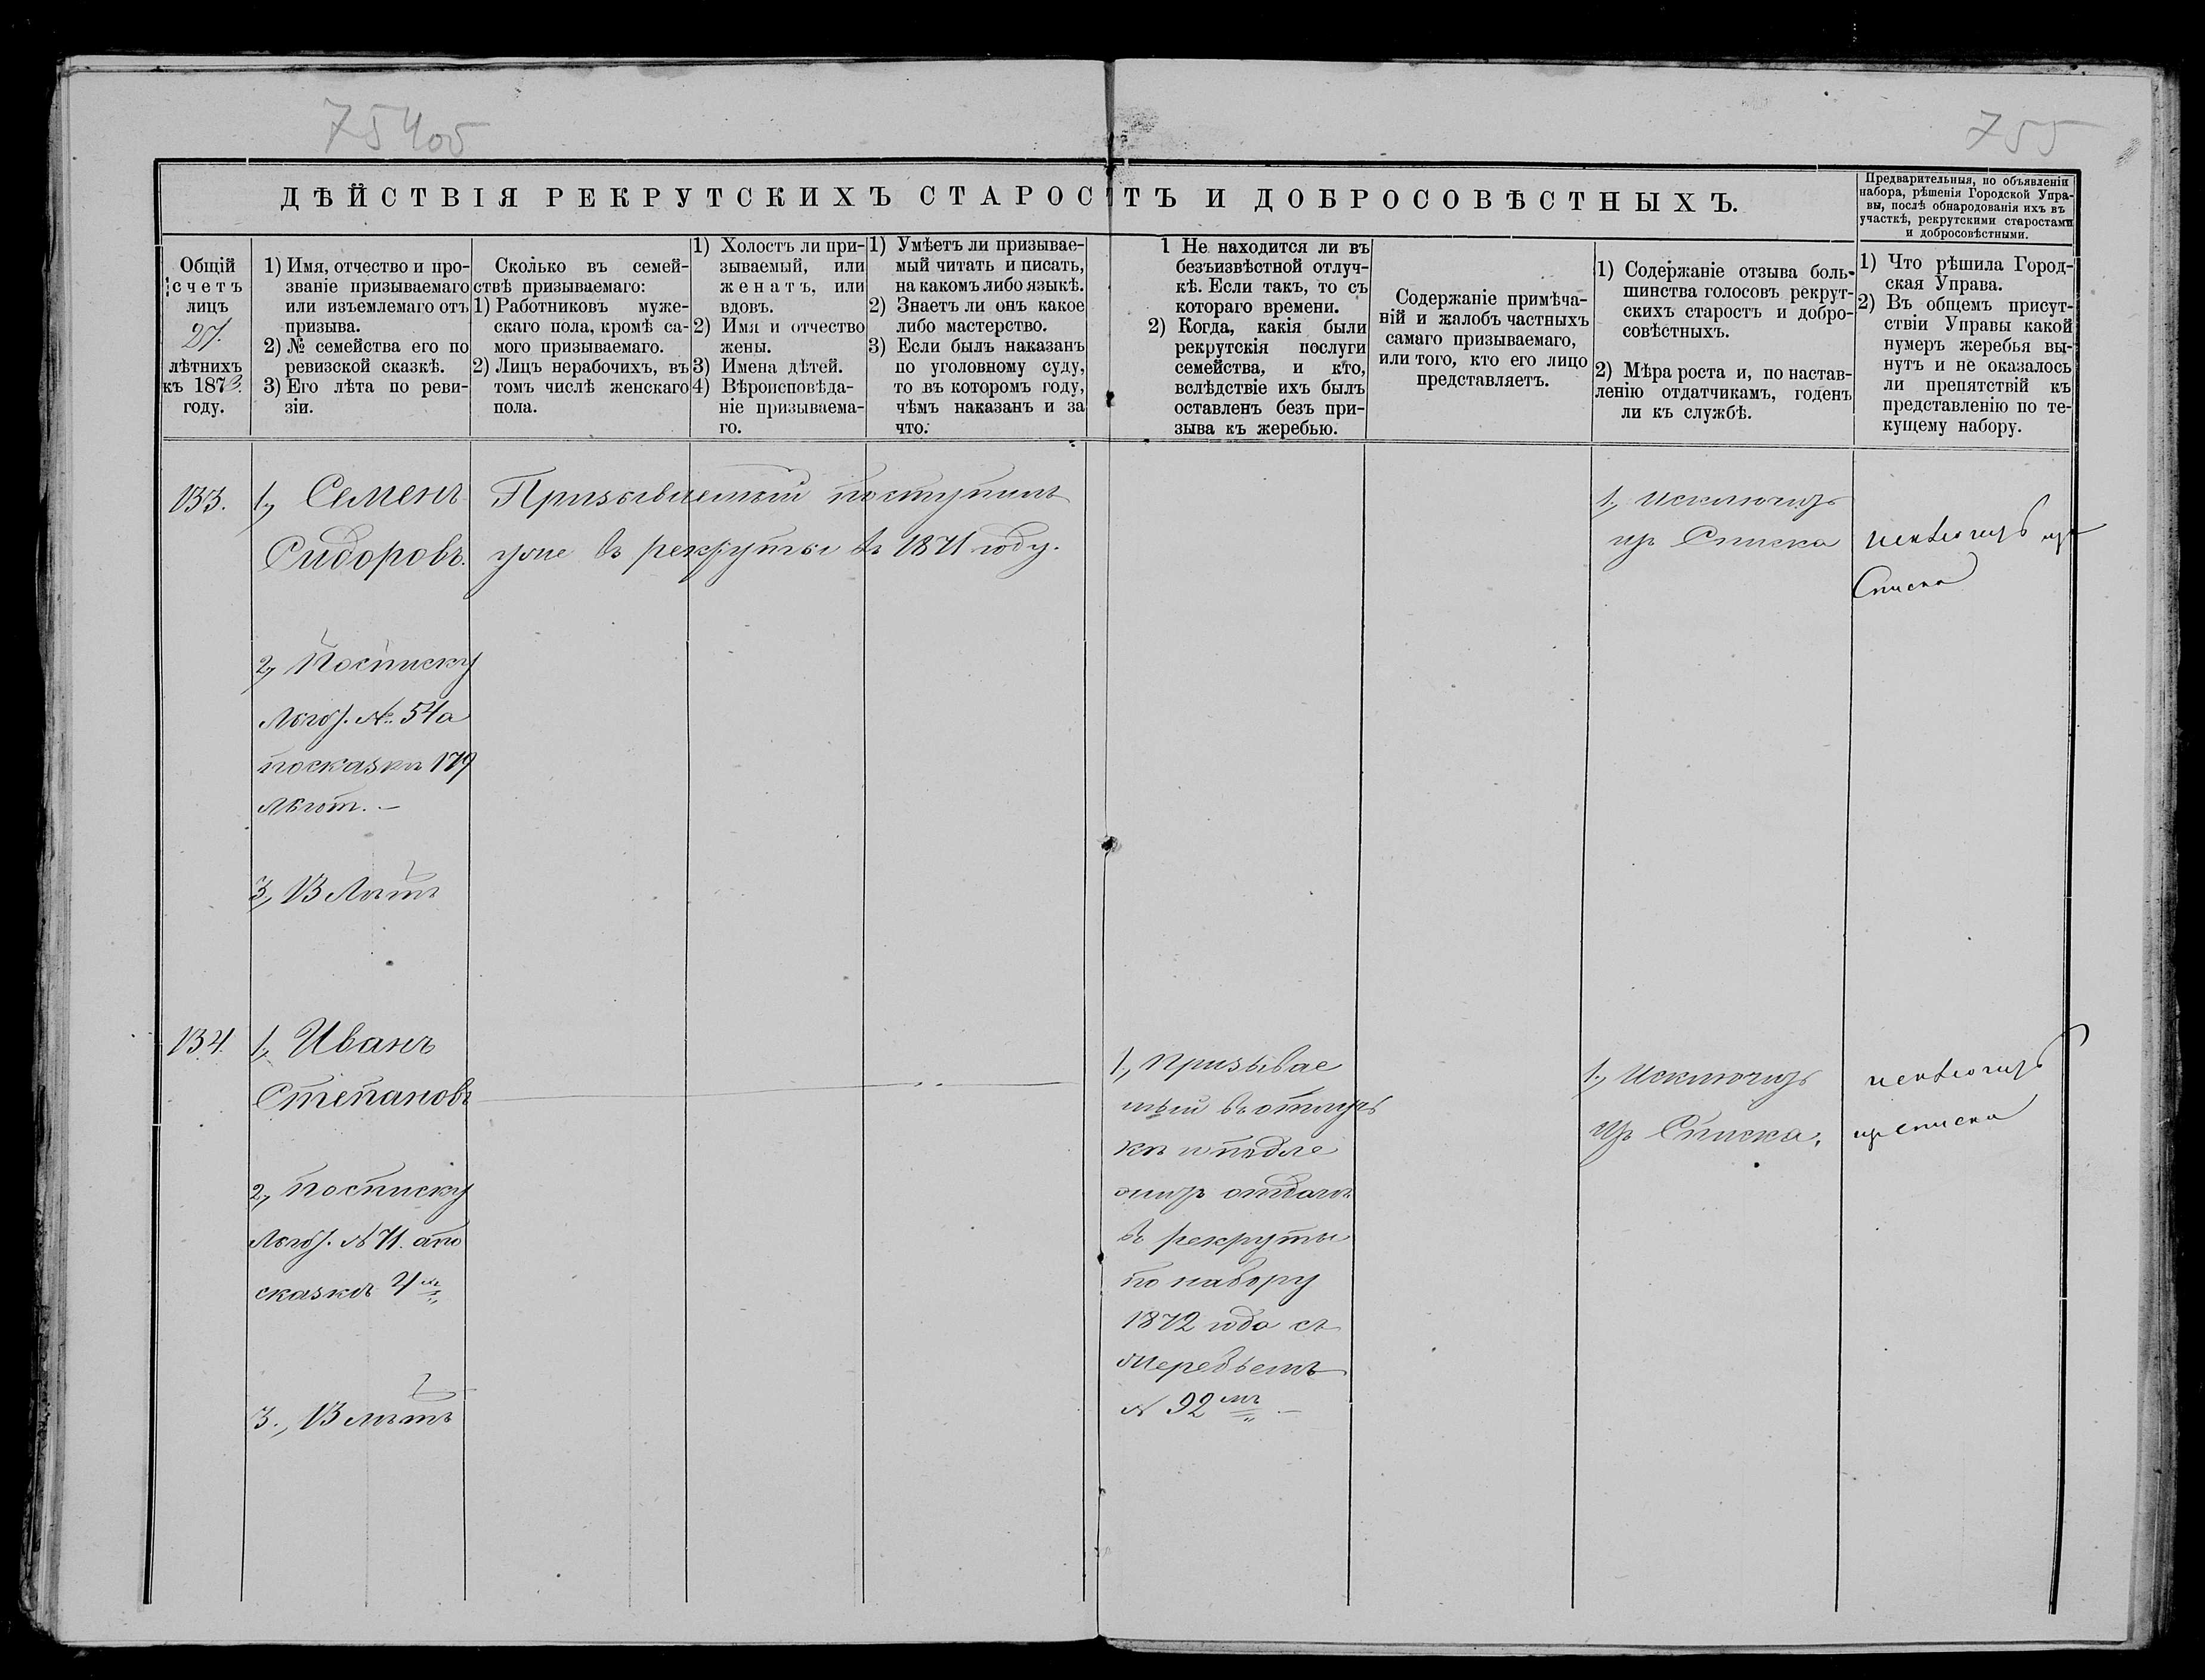 754об
755
ДѢЙСТВІЯ РЕКРУТСКИХЪ СТАРОСТЪ И ДОБРОСОВѢСТНЫХЪ.
Предварительныя, по объявленіи
набора, рѣшенія Городской Упра-
вы, послѣ обнародованія ихъ въ
участкѣ, рекрутскими старостами
и добросовѣстными.
Общій
счетъ
лицъ
27.
лѣтнихъ
къ 1873.
году.
1) Имя, отчество и про-
званіе призываемаго
или изъемлемаго отъ
призыва.
2) № семейства его по
ревизской сказкѣ.
3) Его лѣта по реви-
зіи.
Сколько въ семей-
ствѣ призываемаго:
1) Работниковъ муже-
скаго пола, кромѣ са-
мого призываемаго.
2) Лицъ нерабочихъ, въ
томъ числѣ женскаго
пола.
1) Холостъ ли при-
зываемый, или
женатъ, или
вдовъ.
2) Имя и отчество
жены.
3) Имена дѣтей.
4) Вѣроисповѣда-
ніе призываема-
го.
1) Умѣетъ ли призывае-
мый читать и писать,
на какомъ либо языкѣ.
2) Знаетъ ли онъ какое
либо мастерство.
3) Если былъ наказанъ
по уголовному суду,
то въ которомъ году,
чѣмъ наказанъ и за
что.
1 Не находится ли въ
безъизвѣстной отлуч-
кѣ. Если такъ, то съ
котораго времени.
2) Когда, какія были
рекрутскія послуги
семейства, и кто,
вслѣдствіе ихъ былъ
оставленъ безъ при-
зыва къ жеребью.
Содержаніе примѣча-
ній и жалобъ частныхъ
самаго призываемаго,
или того, кто его лицо
представляетъ.
1) Содержаніе отзыва боль-
шинства голосовъ рекрут-
скихъ старостъ и добро-
совѣстныхъ.
2) Мѣра роста и, по настав-
ленію отдатчикамъ, годенъ
ли къ службѣ.
1) Что рѣшила Город-
ская Управа.
2) Въ общемъ присут-
ствіи Управы какой
нумеръ жеребья вы-
нутъ и не оказалось
ли препятствій къ
представленію по те-
кущему набору.
133.
1, Семенъ
Сидоровъ.
2, По списку
№ 54 а
по сказкѣ 179
3, 13 Лѣтъ
Призываемый поступилъ
уже въ рекруты въ 1871 году.
1, исключить
изъ Списка
исключить изъ
Списка
134.
1, Иванъ
Степановъ
2, по списку
№ 71. а по
сказкѣ
3., 13 лѣтъ
1., Призывае
мый въ отлуч
кѣ и подле
житъ отдачѣ
въ рекруты
по набору
1872 года съ
жеребьемъ
№ 92 мъ
1., Исключить
изъ Списка.
исключить
изъ списка